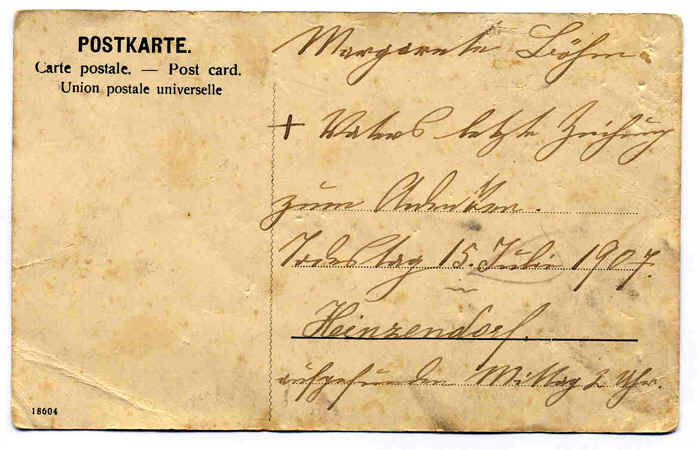 POSTKARTE.
Carte postale. — Post card.
Union postale universelle
Margarete Böhm
+ Vaters letzte Zeichung
zum Andenken.
Todestag 15. Juli 1907.
Heinzendorf.
aufgefunden Mittag 2 Uhr.
18604